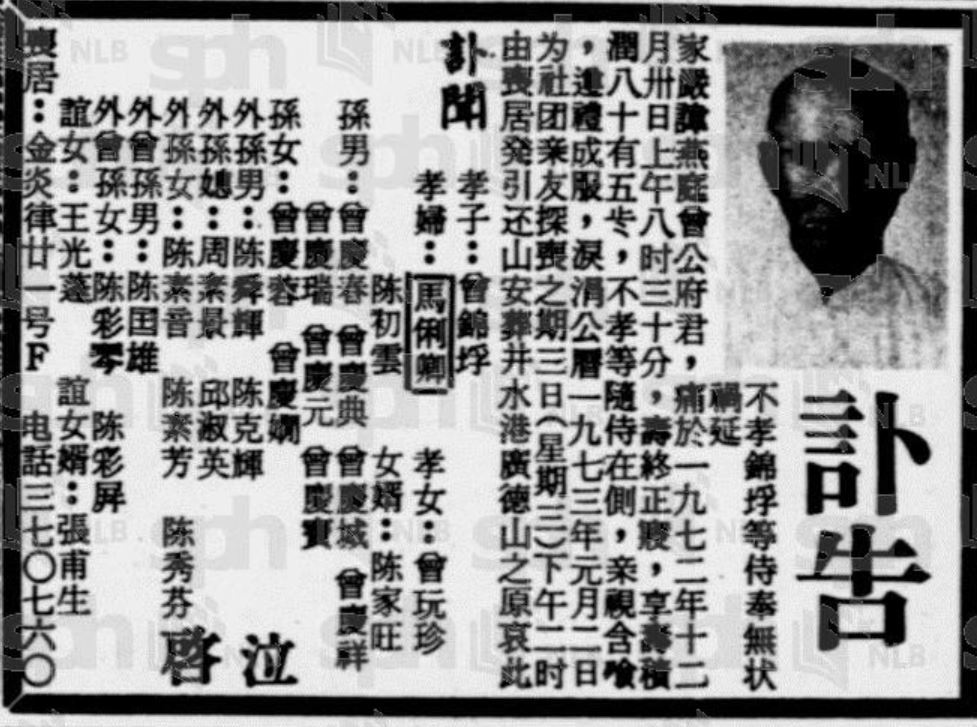 訃告
不孝錦垺等侍奉無状
禍延
家嚴諱燕庭曾公府君，痛於一九七二年十二
月卅日上午八时三十分，壽終正寢，享壽積
潤八十有五岁，不孝等隨侍在側，亲視含唅
，遵禮成服，淚涓公曆一九七三年元月二日
为社团亲友探喪之期三日（星期三）下午二时
由喪居発引还山安葬井水港廣德山之原哀此
訃聞
孝子：曾錦垺
孝婦：馬俐卿
陈初雲
孝女：曾玩珍
女婿：陈家旺
孫男：曾慶春 曾慶典 曾慶城 曾慶祥
曾慶瑞 曾慶元 曾慶賓
孫女：曾慶蓉 曾慶嫻
外孫男：陈舜輝 陈克輝
外孫媳：周素景 邱淑英
外孫女：陈素音 陈素芳 陈秀芬
外曾孫男：陈囯雄
外曾孫女：陈彩琴 陈彩屏
誼女：王光蓬 誼女婿：張甫生
泣啓
喪居：金炎律廿一号F 电話三七〇七六〇